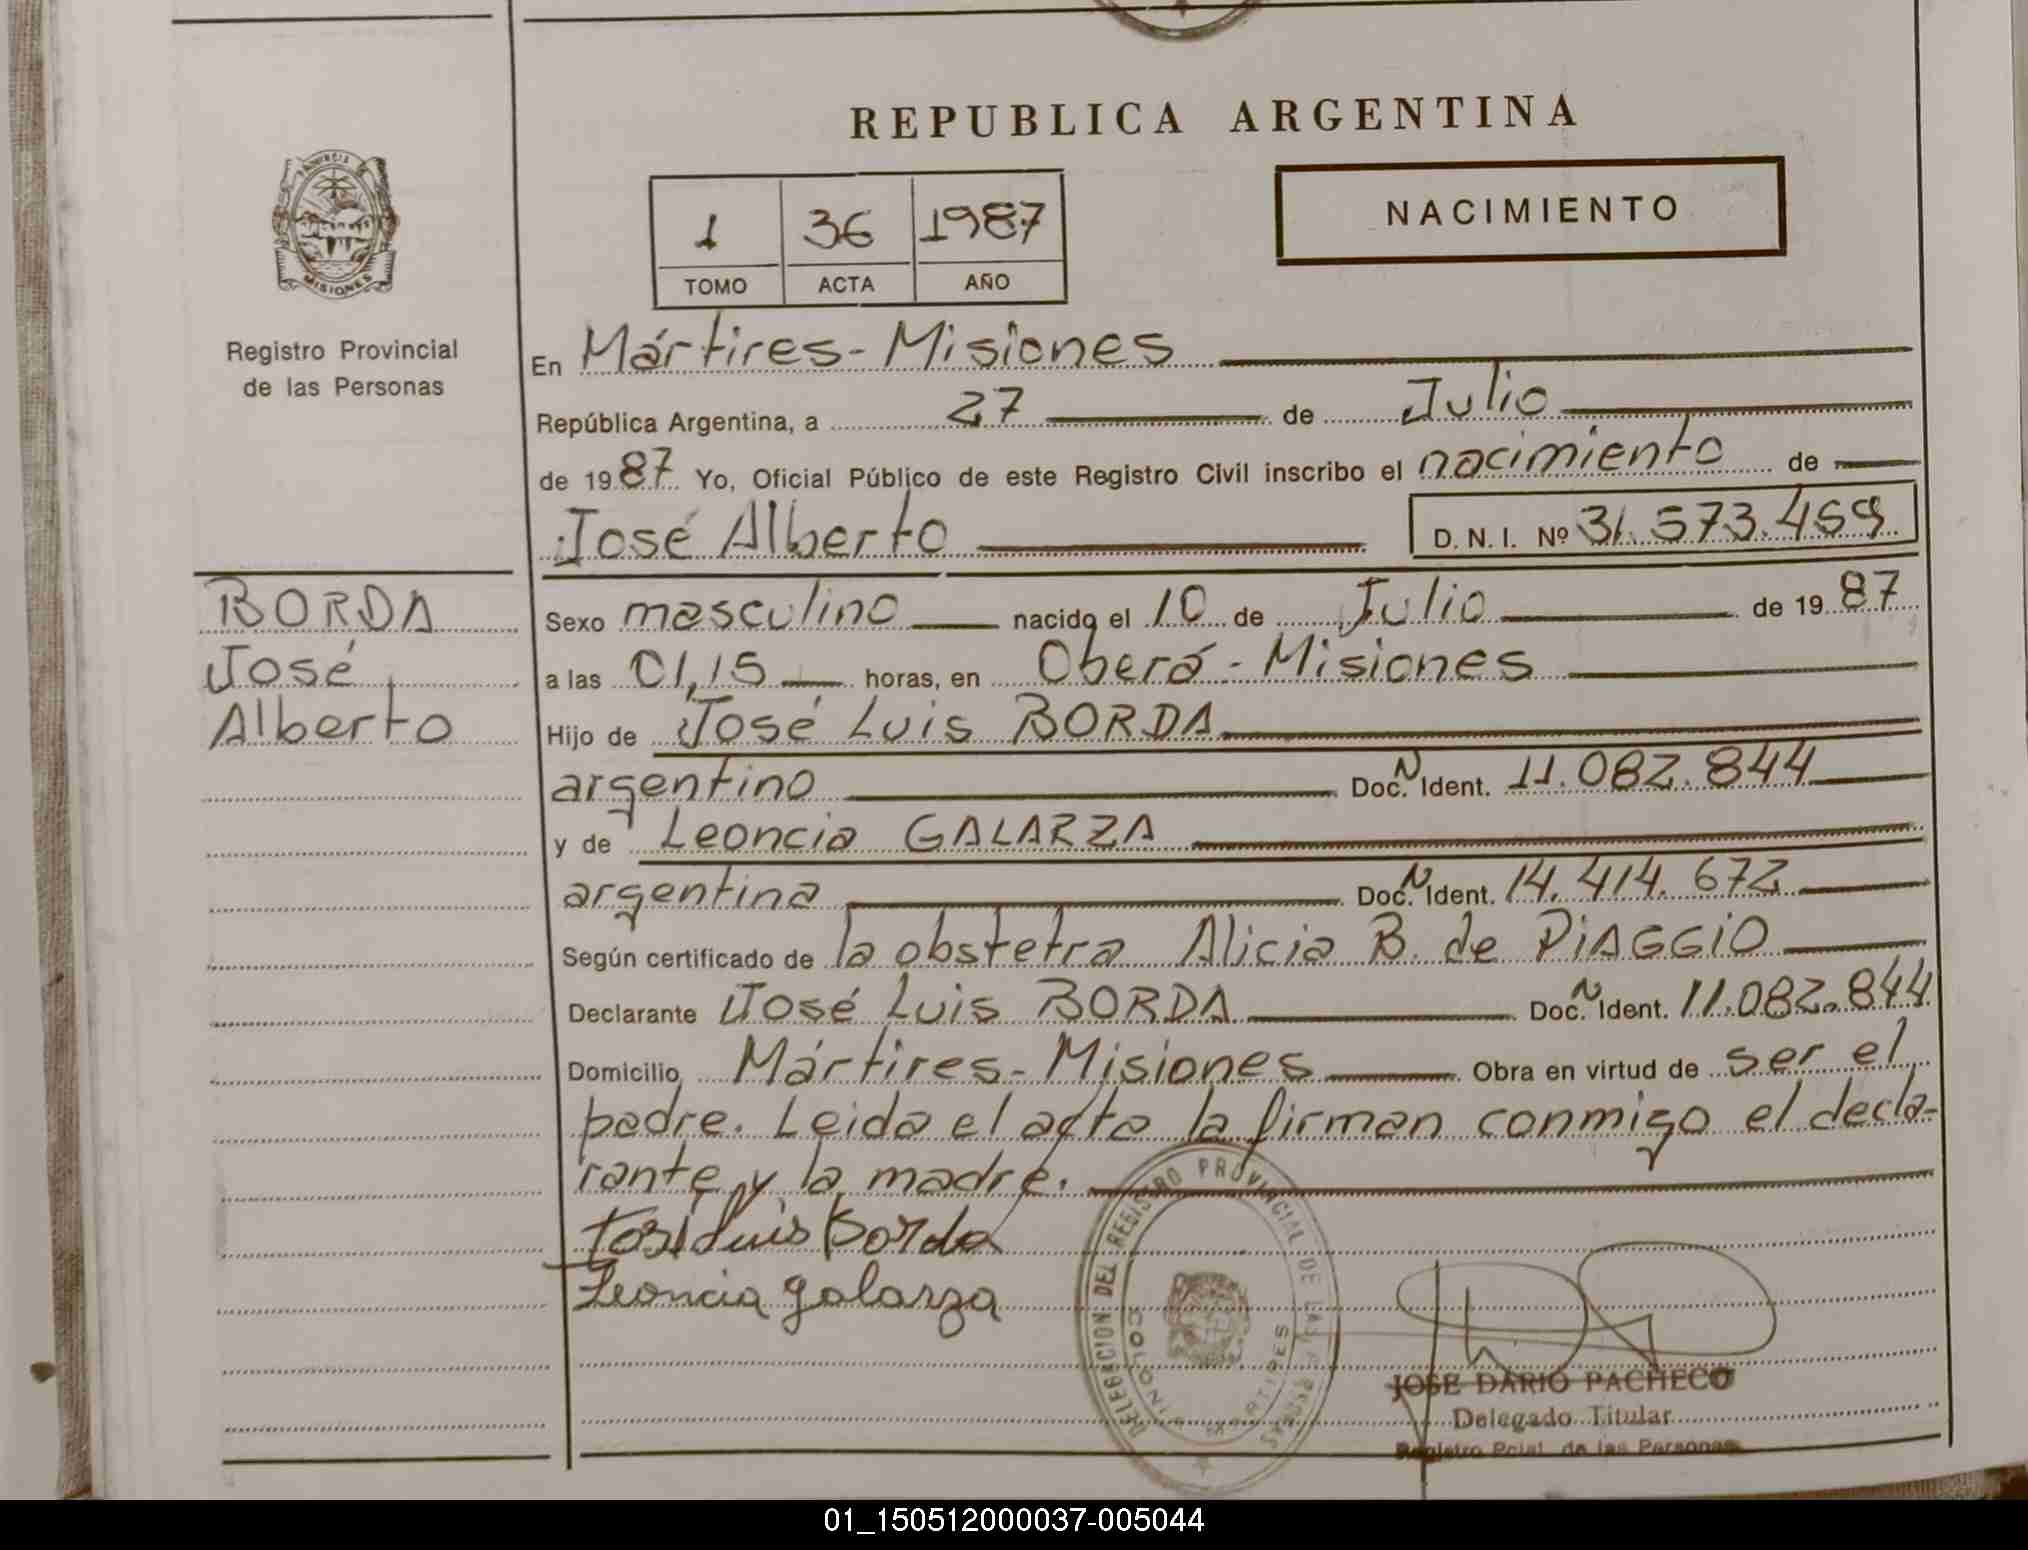 REPUBLICA ARGENTINA
PROVINCIA DE
MISIONES
Registro Provincial
de las Personas
1 36 1987
TOMO ACTA AÑO
NACIMIENTO
En Mártires - Misiones
República Argentina, a 27 de Julio
de 1987 Yo, Oficial Público de este Registro Civil inscribo el nacimiento de
José Alberto D. N. I. Nº 31.573.459
BORDA
José
Alberto
Sexo masculino nacido el 10 de Julio de 1987
a las 01,15 horas, en Oberá - Misiones
Hijo de José Luis BORDA
argentino Doc. N Ident. 11.082.844
y de Leoncia GALARZA
argentina Doc. N Ident. 14.414.672
Según certificado de la obstetra Alicia B. de PIAGGIO
Declarante José Luis BORDA Doc. N Ident. 11.082.844
Domicilio Mártires - Misiones Obra en virtud de ser el
padre. Leida el acta la firman conmigo el decla-
rante y la madre.
José Luis Borda
Leoncia galarza
DELEGACION DEL REGISTRO PROVINCIAL DE LAS PERSONAS
COLONIA MARTIRES
JOSE DARIO PACHECO
Delegado Titular
Registro Pcial. de las Personas
01_150512000037-005044